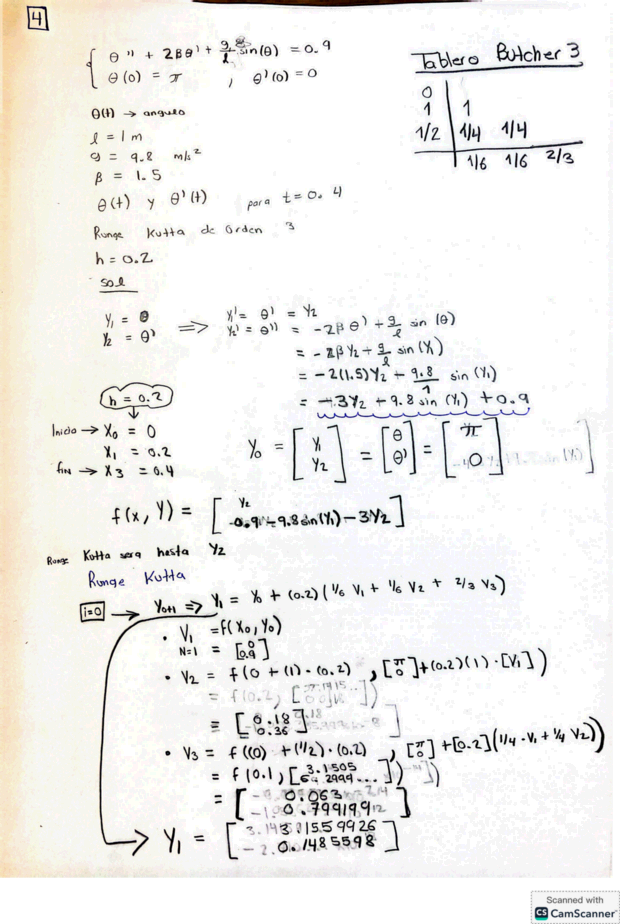 4
θ'' + 2βθ' + g/l sin(θ) = 0.9
θ(0) = π , θ'(0) = 0
Tablero Butcher 3
0
1 1
1/2 1/4 1/4
1/6 1/6 2/3
θ(t) → angulo
l = 1 m
g = 9.8 m/s²
β = 1.5
θ(t) y θ'(t) para t = 0.4
Runge Kutta de orden 3
h = 0.2
sol
Y₁ = θ ⇒ Y₁' = θ' = Y₂
Y₂ = θ' Y₂' = θ'' = -2βθ' + g/l sin(θ)
= -2βY₂ + g/l sin(Y₁)
= -2(1.5)Y₂ + 9.8/1 sin(Y₁)
= -3Y₂ + 9.8 sin(Y₁) + 0.9
h = 0.2
Inicio → X₀ = 0
X₁ = 0.2
fin → X₃ = 0.4
Y₀ = [Y₁ Y₂] = [θ θ'] = [π 0]
f(x, Y) = [Y₂
9.8sin(Y₁) - 3Y₂]
Runge Kutta sera hasta Y₂
Runge Kutta
i=0 → Y₀₊₁ ⇒ Y₁ = Y₀ + (0.2)(1/6 V₁ + 1/6 V₂ + 2/3 V₃)
• V₁ = f(X₀, Y₀)
N=1 = [0 0.9]
• V₂ = f(0 + (1)·(0.2), [π 0] + (0.2)(1)·[V₁])
= f(0.2,
= [0.18 0.36]
• V₃ = f((0) + (1/2)·(0.2), [π 0] + [0.2](1/4·V₁ + 1/4 V₂))
= f(0.1, [3.1505
= [0.063
0.799199]
Y₁ = [
0.1485598]
Scanned with
CS CamScanner